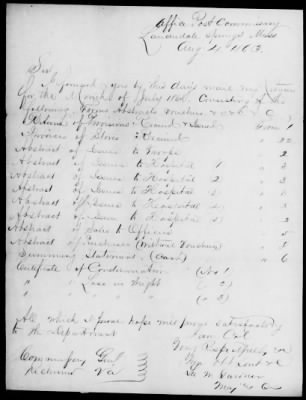 Office Post Commissary
Lauderdale Springs Miss
Aug 4 1863
Sir
I forward you by this days mail my
for the Month of July 1863. Consisting of the
following Forms Abstracts Vouchers &c
Return of Provisions Form 1
Invoices of Stores 22
Abstract of Issues to Troops 2
Abstract of Issues to Hospital 1 3
Abstract of Issues to Hospital 2 3
Abstract of Issues to Hospital 3
Abstract of Issues to Hospital 3
Abstract of Issues to Hospital 3
Abstract of Sales to Officers 5
Abstract of Purchases (without Vouchers)
Summary Statement (Cash) 6
Certificate of Condemnation (No 1)
" " Loss in Weight ( " 2)
" " " " ( " 3)
All which I hope will prove satisfactory
to the Department
I am Col
Very Respectfully
Your Obt Svt
Commissary Genl
Richmond Va
Maj & C